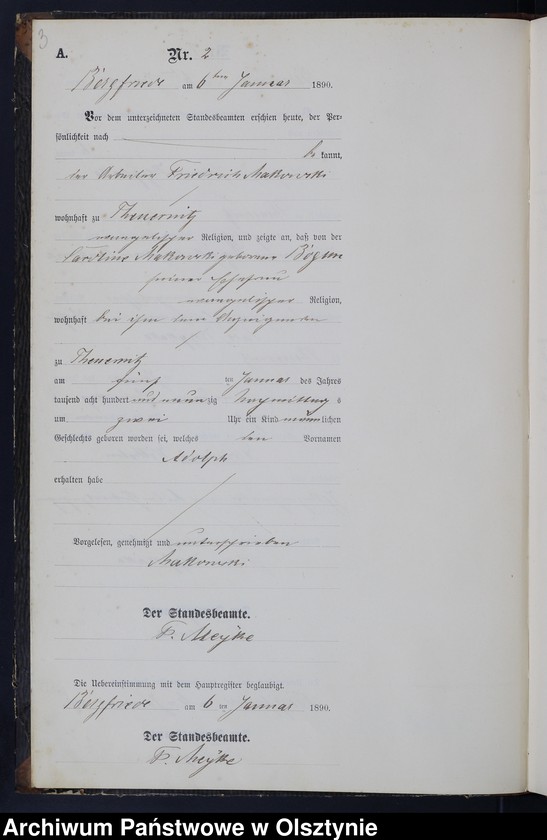 3
A. Nr. 2
Bergfriede am 6ten Januar 1890.
Vor dem unterzeichneten Standesbeamten erschien heute, der Per-
sönlichkeit nach
be kannt,
der Arbeiter Friedrich Makowski
wohnhaft zu Theuernitz
evangelischer Religion, und zeigte an, daß von der
Caroline Makowski geborene
seiner Ehefrau
evangelischer Religion,
wohnhaft bei ihm dem Anzeigenden
zu Theuernitz
am fünf ten Januar des Jahres
tausend acht hundert und neunzig Nachmittag s
um zwei Uhr ein Kind männlichen
Geschlechts geboren worden sei, welches den Vornamen
Adolph
erhalten habe
Vorgelesen, genehmigt und unterschrieben
Makowski
Der Standesbeamte.
Die Uebereinstimmung mit dem Hauptregister beglaubigt.
Bergfriede am 6 ten Januar 1890.
Der Standesbeamte.
Archiwum Państwowe w Olsztynie